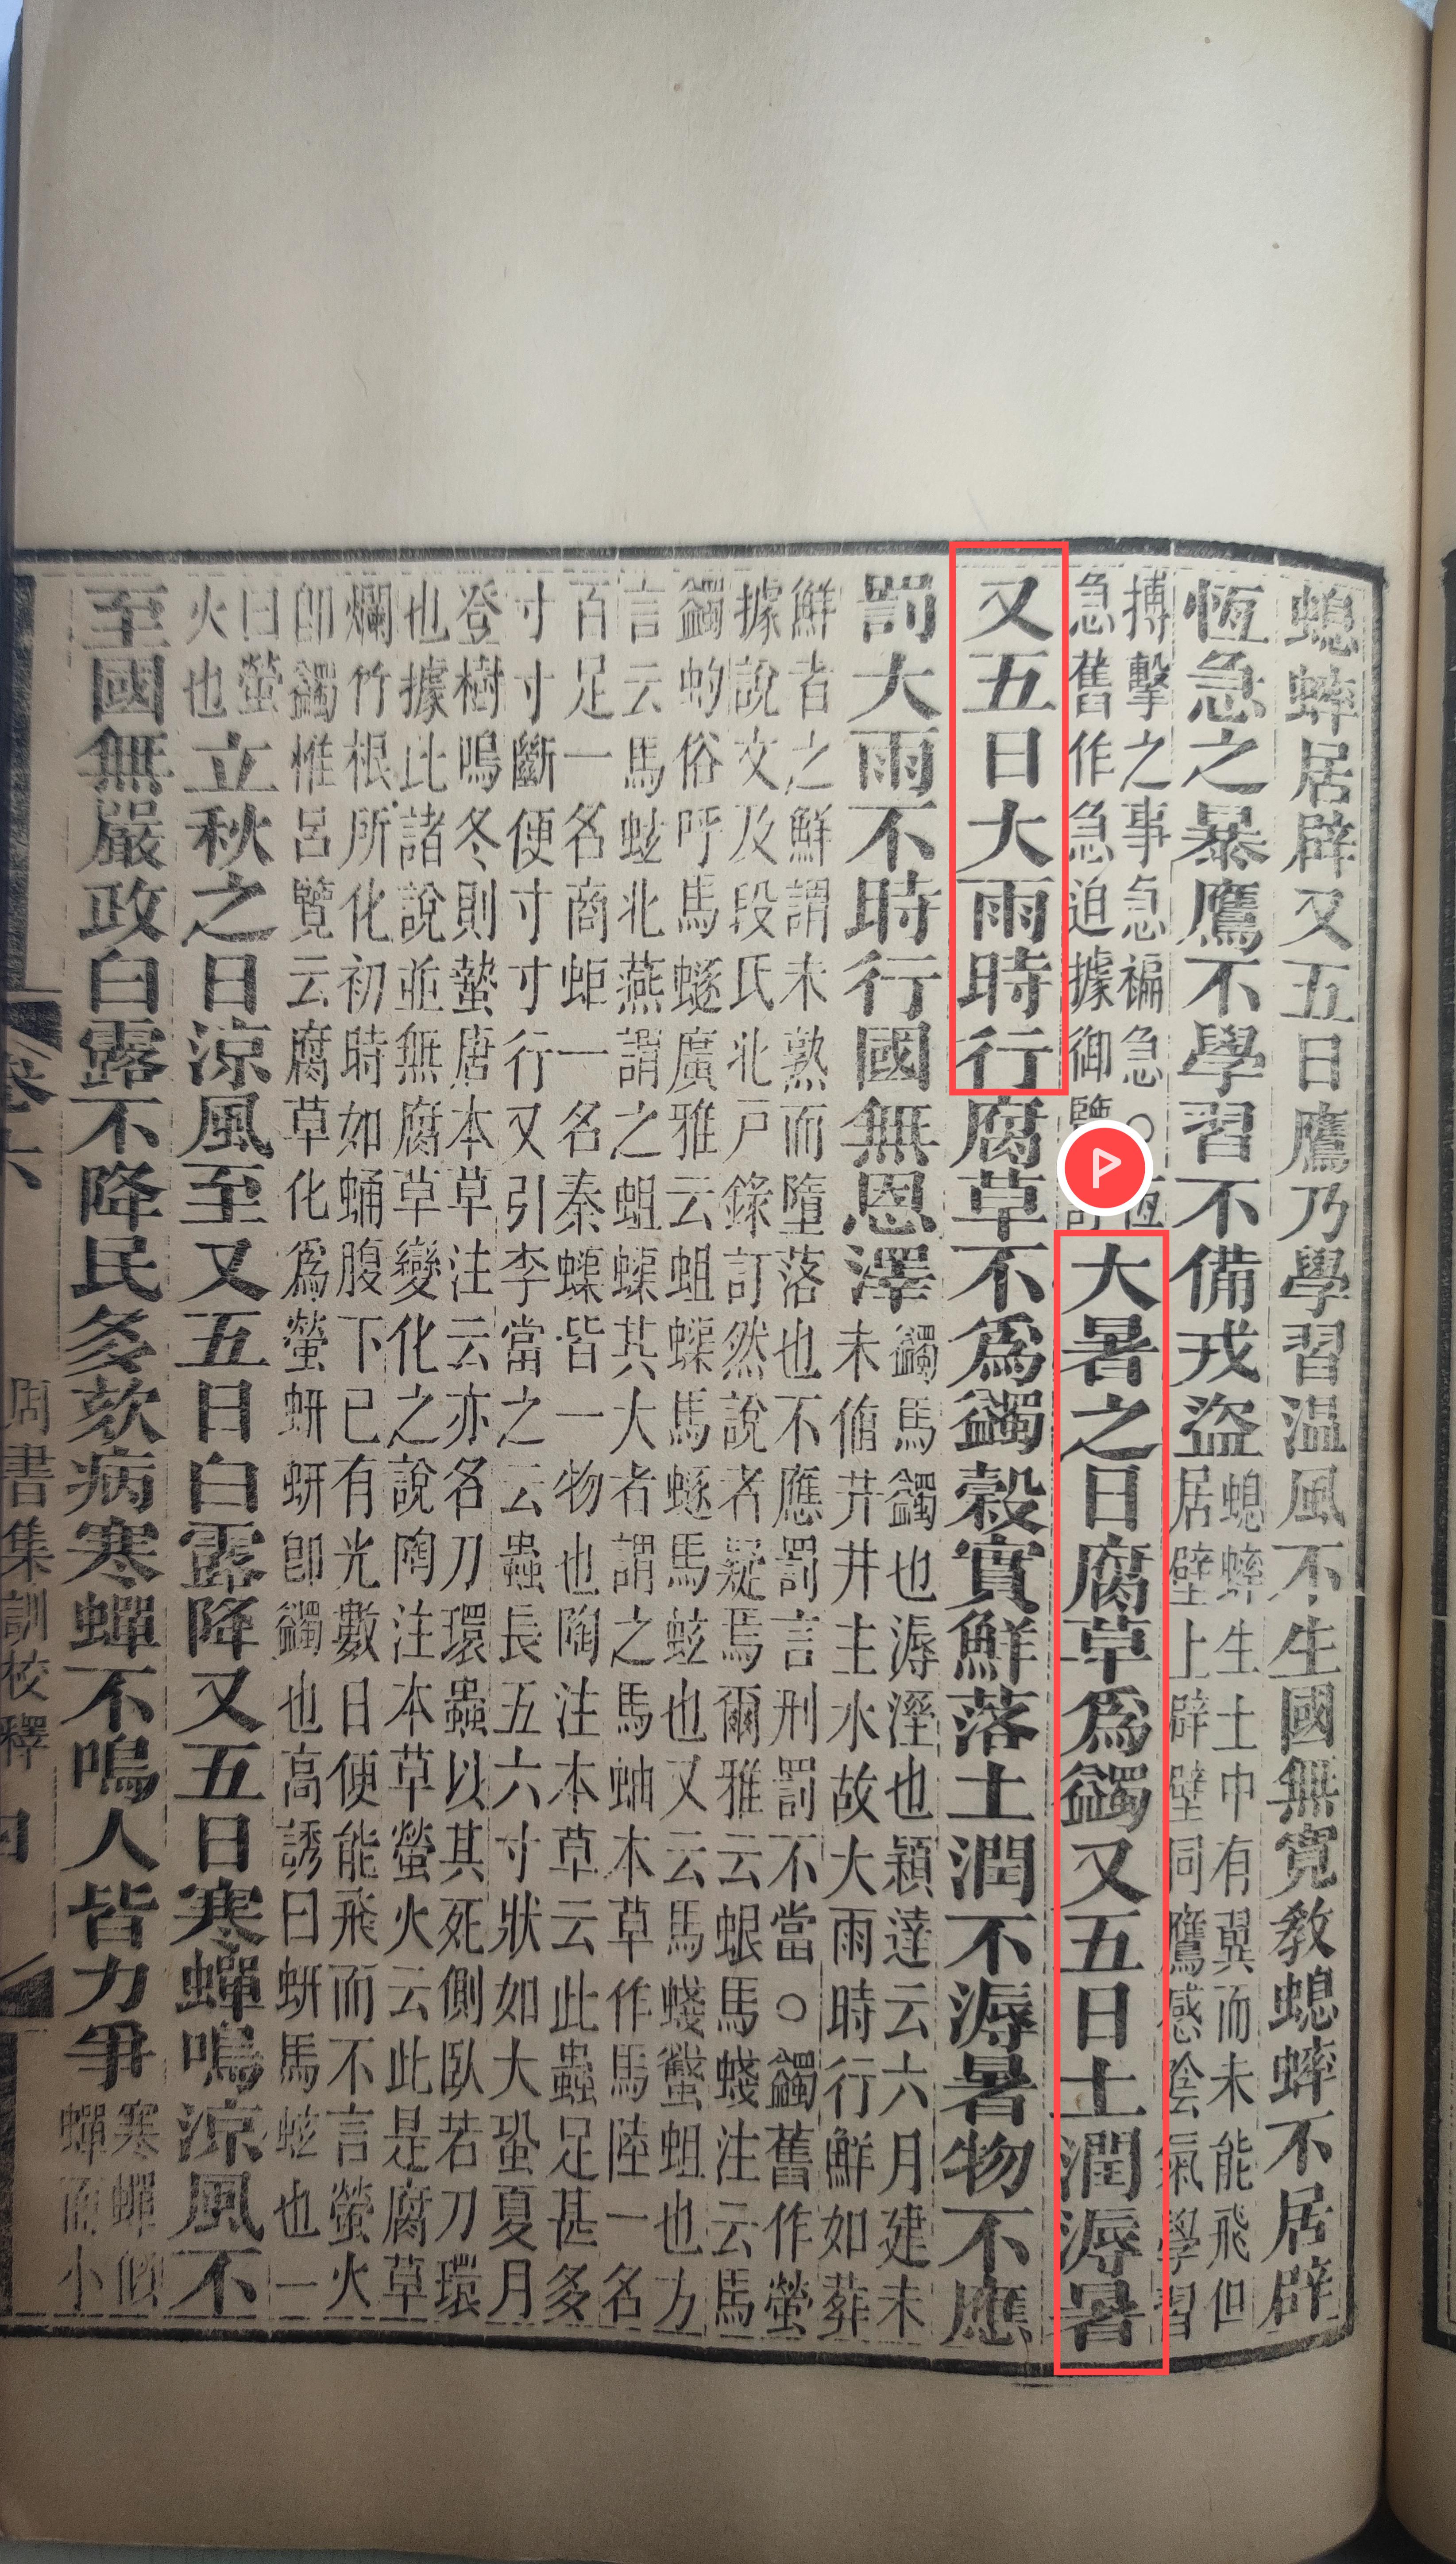 蟋蟀居辟又五日鷹乃學習温風不生國無寛教蟋蟀不居辟
恆急之暴鷹不學習不備戎盜
蟋蟀生土中有翼而未能飛但
居壁上辟壁同鷹感陰氣學習
搏擊之事急褊急○恆
急舊作急迫據御覽訂
大暑之日腐草爲蠲又五日土潤溽暑
又五日大雨時行腐草不爲蠲穀實鮮落土潤不溽暑物不應
罰大雨不時行國無恩澤
蠲馬蠲也溽溼也穎達云六月建未
未脩井井主水故大雨時行鮮如葬
鮮者之鮮謂未熟而墮落也不應罰言刑罰不當○蠲舊作螢
據說文及段氏北戸錄訂然說者疑焉爾雅云蛝馬䗃注云馬
蠲蚐俗呼馬廣雅云蛆蟝馬馬蚿也又云馬䗃螫蛆也方
言云馬蚿北燕謂之蛆蟝其大者謂之馬蚰本草作馬陸一名
百足一名商蚷一名秦蟝皆一物也陶注本草云此蟲足甚多
寸寸斷便寸寸行又引李當之云蟲長五六寸狀如大蛩夏月
登樹鳴冬則蟄唐本草注云亦名刀環蟲以其死側臥若刀環
也據此諸說並無腐草變化之說陶注本草螢火云此是腐草
爛竹根所化初時如蛹腹下已有光數日便能飛而不言螢火
卽蠲惟呂覽云腐草化爲螢蚈蚈卽蠲也高誘曰蚈馬蚿也一
曰螢
火也
立秋之日涼風至又五日白露降又五日寒蟬鳴涼風不
至國無嚴政白露不降民多欬病寒蟬不鳴人皆力爭
寒蟬似
蟬而小
卷六
周書集訓校釋
四